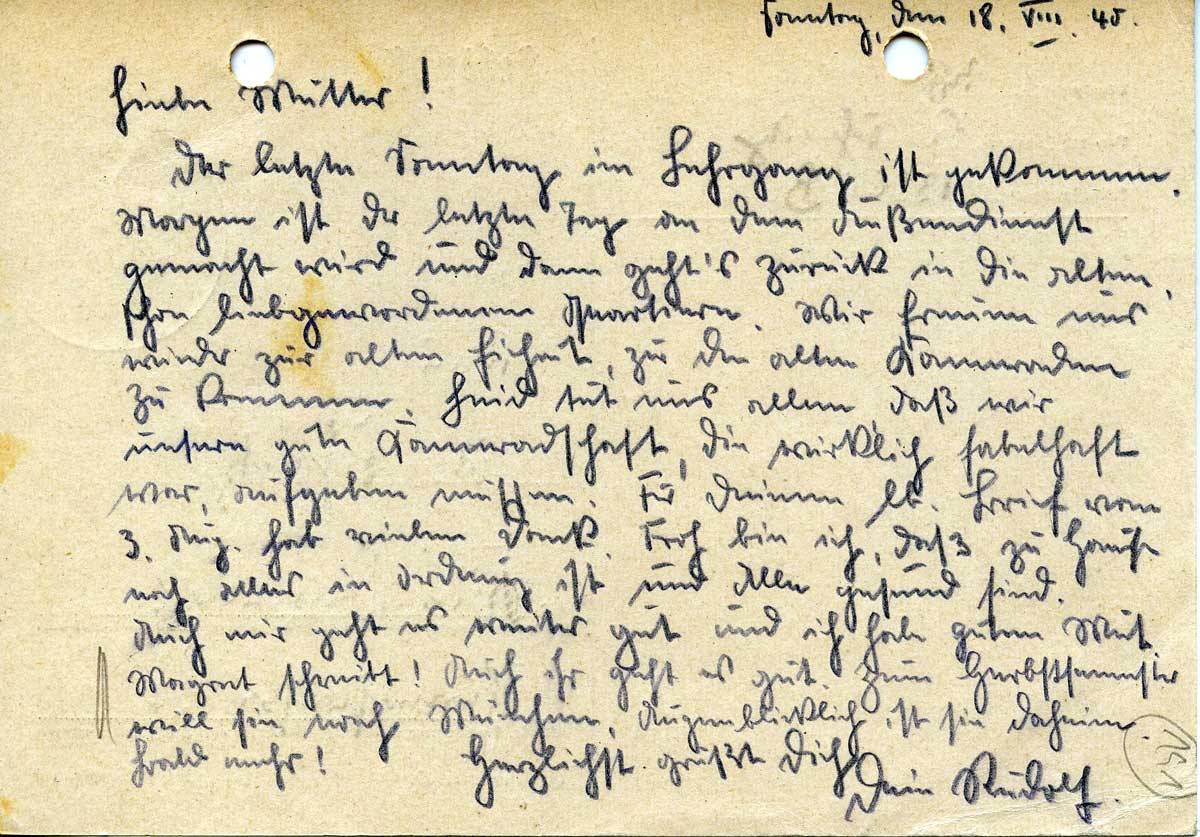 Sonntag, den 18. VIII. 40.
Liebe Mutter!
Der letzte Sonntag im Lehrgang ist gekommen.
Morgen ist der letzte Tag an dem Außendienst
gemacht wird und dann geht's zurück in die alten,
schon liebgewordenen Quartiere. Wir freuen uns
wieder zur alten Einheit, zu den alten Kameraden
zu kommen. Leid tut uns allen, daß wir
unsere gute Kameradschaft, die wirklich fabelhaft
war, aufgeben müssen. Für Deinen lb. Brief vom
3. Aug. hab vielen Dank. Froh bin ich, daß zu Hause
noch alles in Ordnung ist und Alle gesund sind.
Auch mir geht es weiter gut und ich habe guten Mut.
Magret schreibt! Auch ihr geht es gut. Zum Herbstsemester
will sie nach München, Augenblicklich ist sie daheim.
Bald mehr! Herzlichst grüßt Dich
Dein Rudolf.